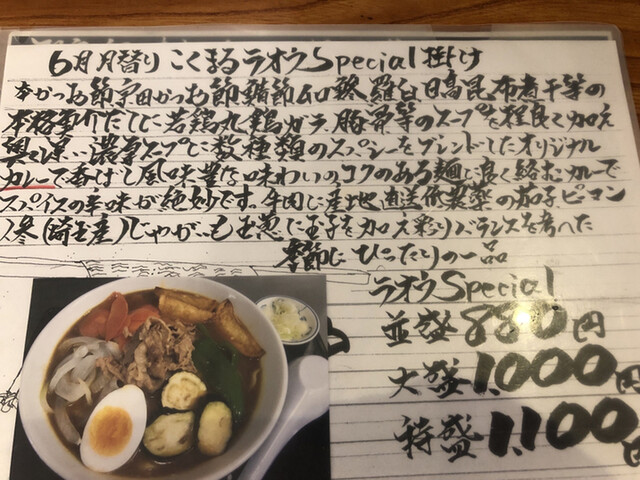 6月月替り こくまろラオウSpecial掛け
本かつお節宗田かつお節鯖節ムロ鯵羅臼、日高昆布煮干等の
本格魚介だしに若鶏丸鶏ガラ、豚骨等のスープを程良く加え
奥く深い濃厚スープに数種類のスパイシーをブレンドしたオリジナル
カレーで香ばし風味豊な味わいのコクのある麺に良く絡むカレーで
スパイスの辛味が絶妙です。牛肉に産地直送低農薬の茄子ピーマン
人参(埼玉産)じゃがいも玉葱に玉子を加え彩りバランスを考えた
季節にぴったりの一品
ラオウSpecial
並盛880円
大盛1,000円
特盛1,100円